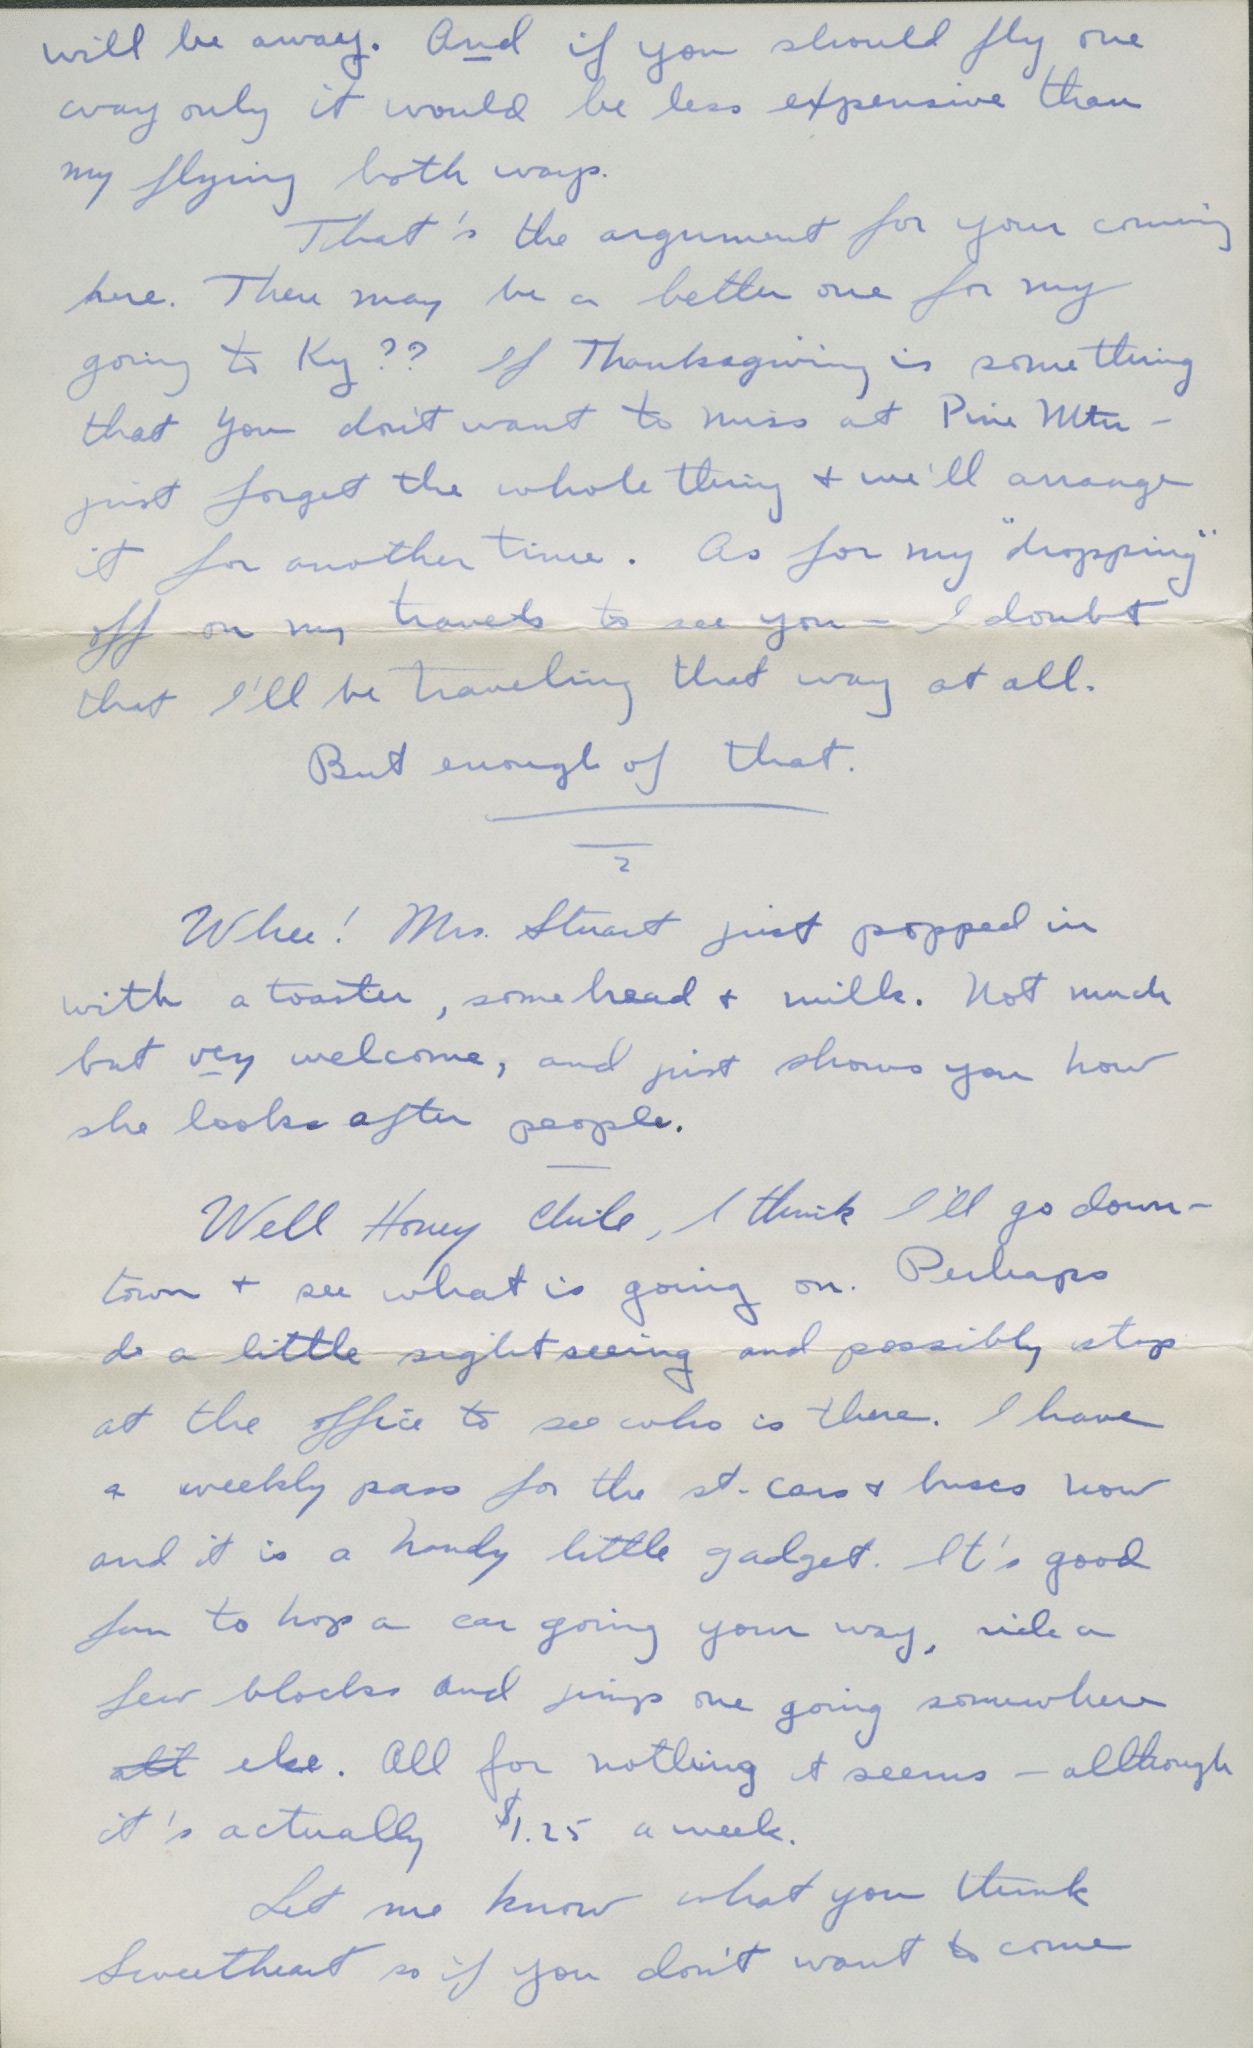 will be away. And if you should fly one
way only it would be less expensive than
my flying both ways.
That's the argument for your coming
here. There may be a better one for my
going to Ky?? If Thanksgiving is something
that you don't want to miss at Pine Mtn -
just forget the whole thing + we'll arrange
it for another time. As for my "dropping"
off on my travels to see you - I doubt
that I'll be traveling that way at all.
But enough of that.
2
Whee! Mrs. Stuart just popped in
with a toaster, some bread + milk. Not much
but very welcome, and just shows you how
she looks after people.
Well Honey Chile, I think I'll go down-
town + see what is going on. Perhaps
do a little sightseeing and possibly stop
at the office to see who is there. I have
a weekly pass for the st. cars + buses now
and it is a handy little gadget. It's good
fun to hop a car going your way, ride a
few blocks and jump one going somewhere
else. All for nothing it seems - although
it's actually $1.25 a week.
Let me know what you think
Sweetheart so if you don't want to come